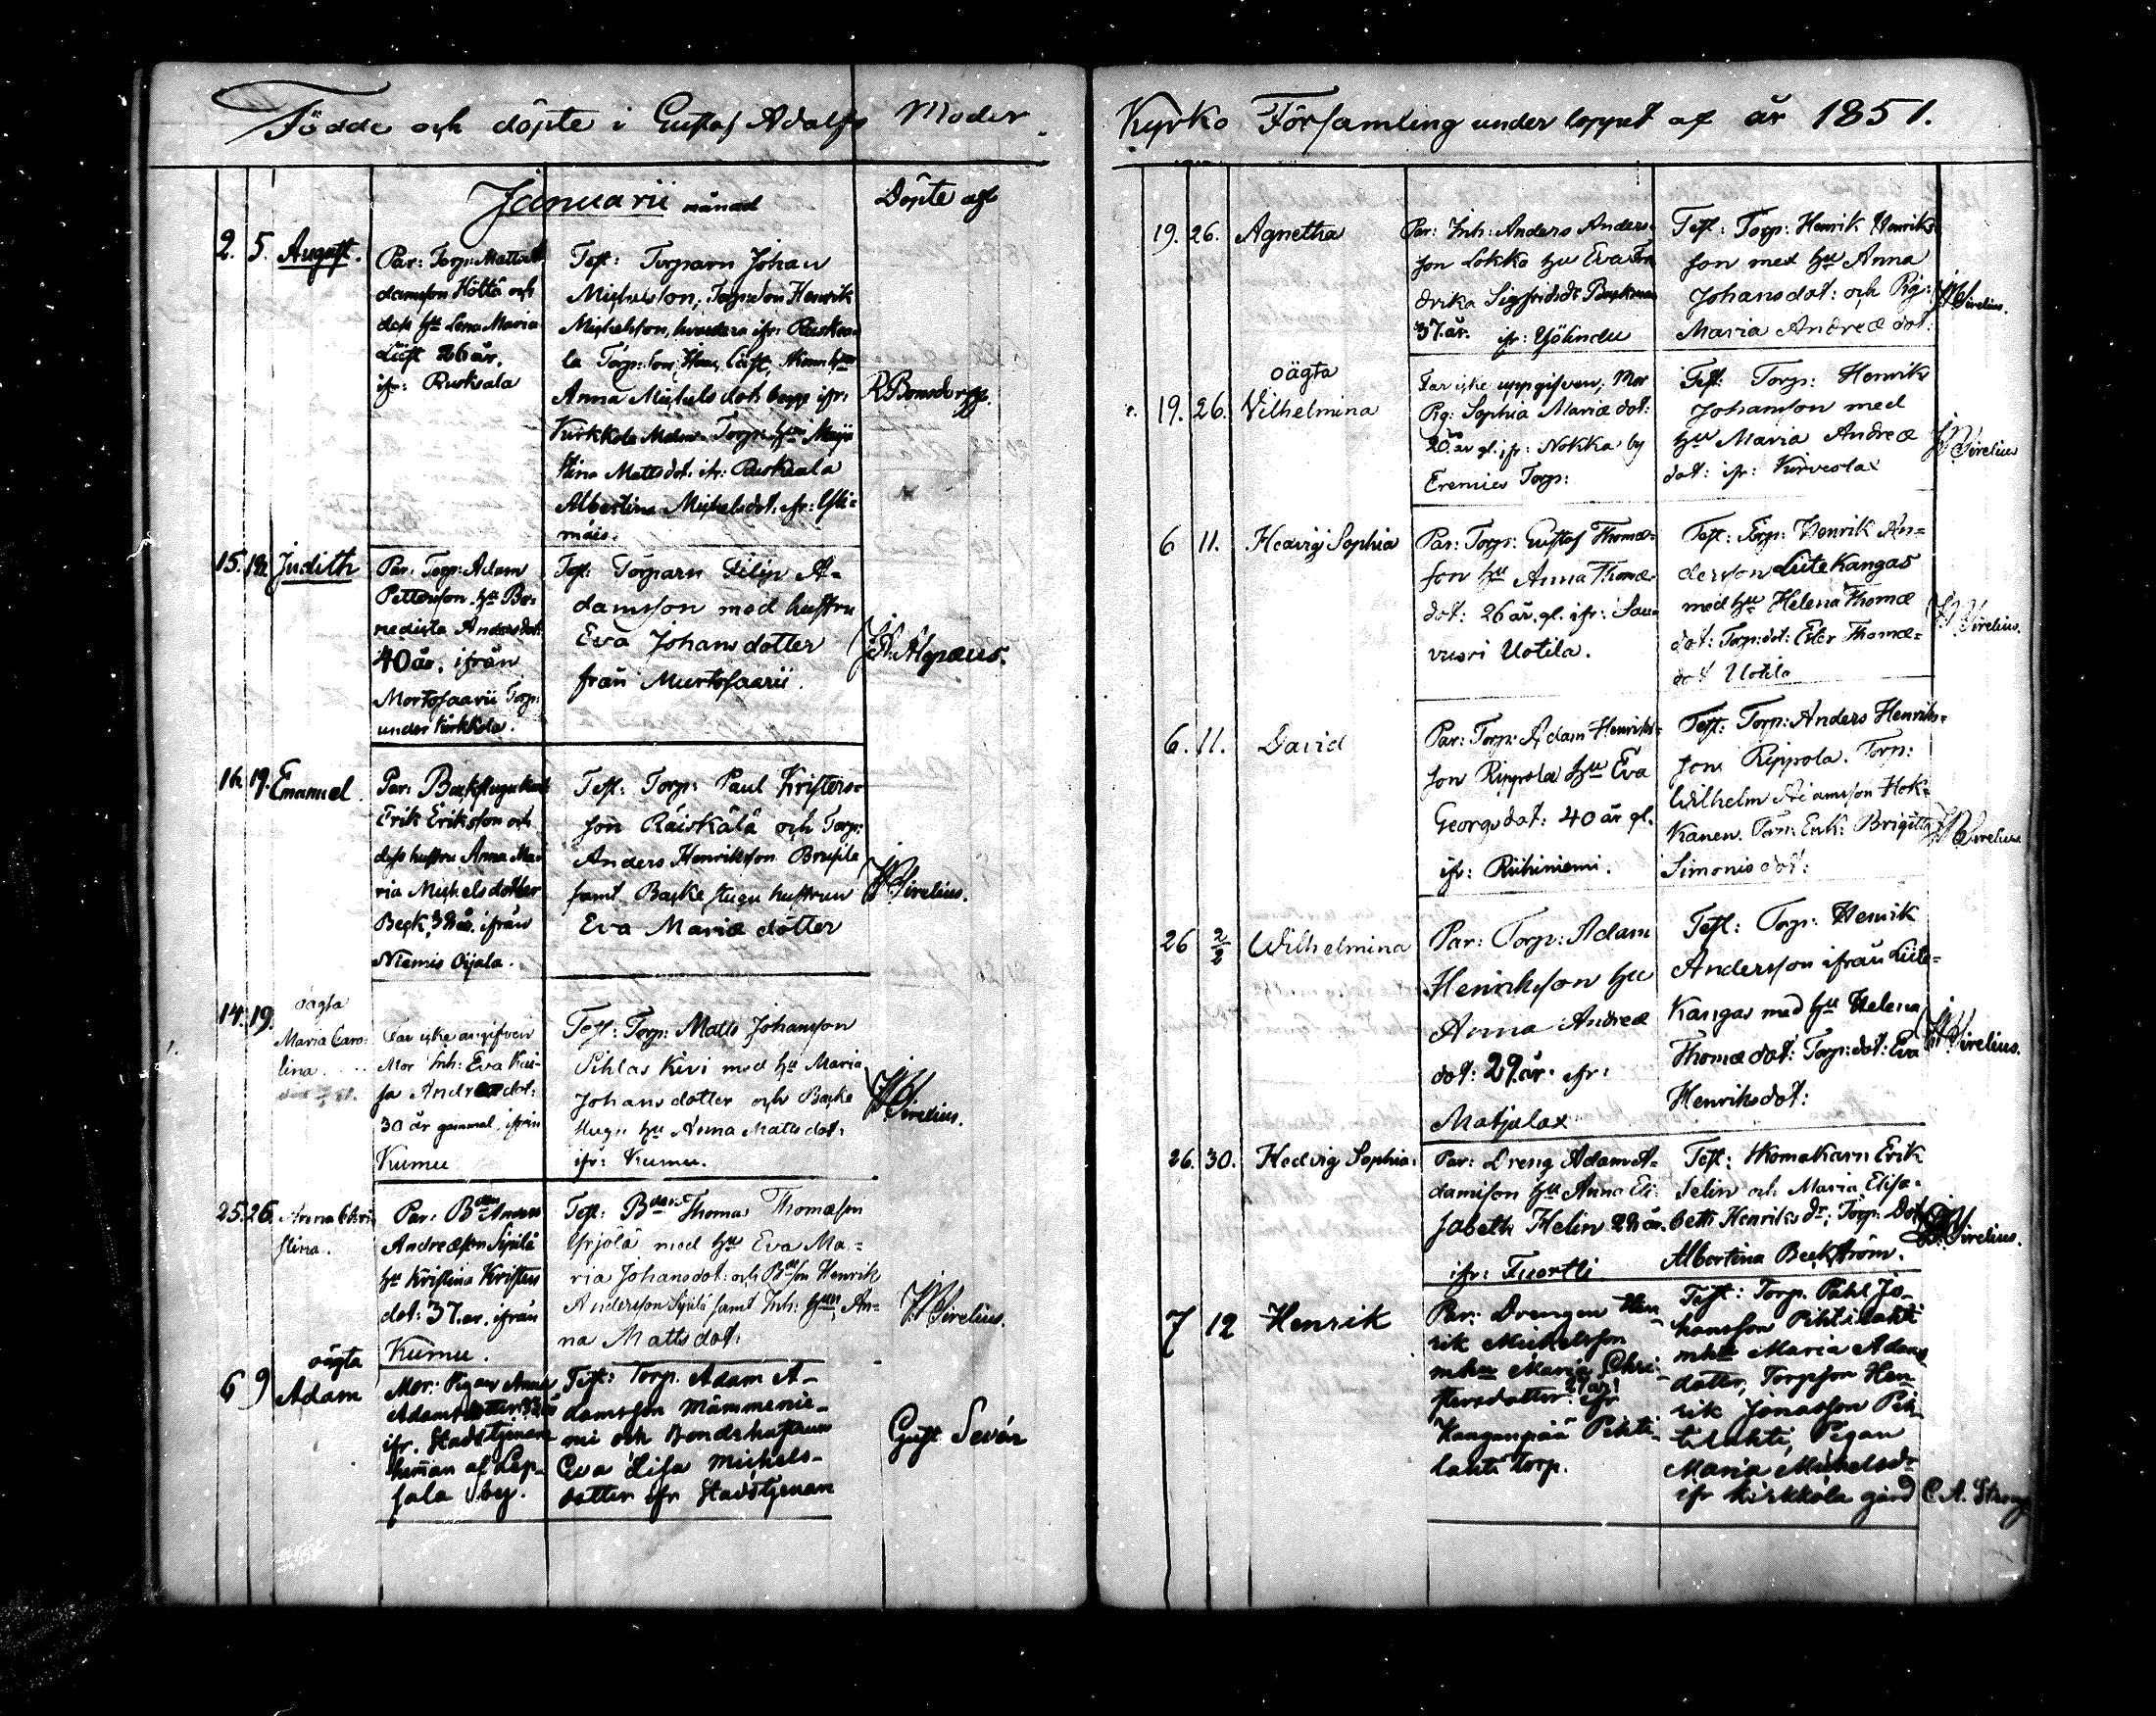 Födde och döpte i Gustaf Adolfs Moder
Januarii månad
Döpte af
2. 5. August.
Par: Torp: Matts A
damsson Höltä och
dess hu Lena Maria
Löft 26 år.
ifr: Ruskeala
Test: Torparn Johan
Michelsson, Torpsson Henrik
Michelsson, ifr: Ruskea-
la Torp:
Anna Michelsdotr ifr:
Kirkkola Torp: Maja
Stina Mattsdot: ifr: Ruskeala
Albertina Michelsdot: ifr:
R Bonsdorff.
15. 19. Judith
Par. Torp: Adam
Pettersson hu Be-
nedicta Andersdot:
40 år, ifrån
Mortosaarii Torp:
under Kirkkola.
Test: Torparn Filip A-
damsson med hustru
Eva Johansdotter
från Murtosaarii.
J A. Alopæus.
16. 19. Emanuel.
Par: Backstugukarl
Erik Eriksson och
dess hustru Anna Ma-
ria Michelsdotter
Beck, 32 år. ifrån
Niemis Oijala.
Test: Torp: Paul Kristers-
son Räiskälä och Torp:
Anders Henriksson Brusila
samt Backstugu hustrun
Eva Mariæ dotter
Sirelius.
14. 19. oägta
Maria Caro-
lina.
Far icke angifven
Mor Inh: Eva Kai-
sa Andreædot:
30 år gammal, ifrån
Kumu
Test: Torp: Matts Johansson
Pihlas Kivi med hu Maria
Johansdotter och Backs
stugu hu Anna Mattsdot:
ifr: Kumu.
Sirelius.
25. 26. Anna Chri-
stina.
Par: Bden Anders
Andreæson Sipilä
hu Kristina Kristers
dot: 37. år, ifrån
Kumu.
Test: Bden Thomas Thomæson
Yrjölä med hu Eva Ma-
ria Johansdot: och Bdeson Henrik
Andersson Sipilä samt Inh: hun An-
na Mattsdot:
Sirelius.
6 9 oägta
Adam
Mor: Pigan Anna
Adamsdotter 32 år
ifr. Stadstjenan
heman af Lep-
sala by.
Test: Torp. Adam A-
damsson Mämmenie-
mi och Bondehustrun
Eva Lisa Michels-
dotter ifr Stadstjenan
Gust Sevón
Kyrko Församling under loppet af år 1851.
19. 26. Agnetha
Par: Inh: Anders Anders-
son Lokka hu Eva Fre
drika Sigfridsdr Backman
37. år. ifr: Yöhndu
Test: Torp: Henrik Henriks
son med hu Anna
Johansdot: och Pig:
Maria Andreædot:
Sirelius.
19. 26. oägta
Vilhelmina
Far icke uppgifven, Mor
Pig: Sophia Mariædot:
20. år gl. ifr: Nokka by
Eremies Torp:
Test: Torp: Henrik
Johansson med
hu Maria Andreæ
dot: ifr: Kirveslax
Sirelius
6 11. Hedvig Sophia
Par: Torp: Gustaf Thomæ-
son hu Anna Thomæ
dot: 26 år. gl. ifr: Sau-
vuori Uotila.
Test: Torp: Henrik An-
dersson LiteKangas
med hu Helena Thomæ
dot: Torp:dot: Ester Thomæ-
dot Uotila
Sirelius.
6. 11. David
Par: Torp: Adam Henriks-
son Rippola hu Eva
Georgsdot: 40 år gl.
ifr: Riihiniemi.
Test: Torp: Anders Henriks-
son Rippola. Torp:
Wilhelm Adamsson Hok-
kanen. Torp: Enk: Brigitta
Simonisdot:
Sirelius
26 2/2 Wilhelmina
Par: Torp: Adam
Henriksson hu
Anna Andreæ
dot: 29. år. ifr:
Matjulax
Test: Torp: Henrik
Andersson ifrån Liite-
Kangas med hu Helena
Thomædot: Torp:dot: Eva
Henriksdot:
Sirelius.
26. 30. Hedvig Sophia.
Par: Dreng Adam A-
damsson hu Anna Eli-
sabeth Helin 28 år.
ifr: Tuortti
Test: Skomakarn Erik
Selin och Maria Elisa-
beth Henriksdr; Torp: Dot
Albertina Beckström.
Sirelius.
7 12 Henrik
Par: Drengen Hen
rik Michelsson
mhu Maria Chri-
stersdotter 27 år ifr
Kangaspää Pihti-
lanti torp.
Test: Torp. Påhl Jo-
hansson Pihtilahti
mhu Maria Adams
dotter, Torpson Hen-
rik Jonasson Pih-
tilahti, Pigan
Maria Michelsdr
ifr Kirkkola gård
C. A. Streng